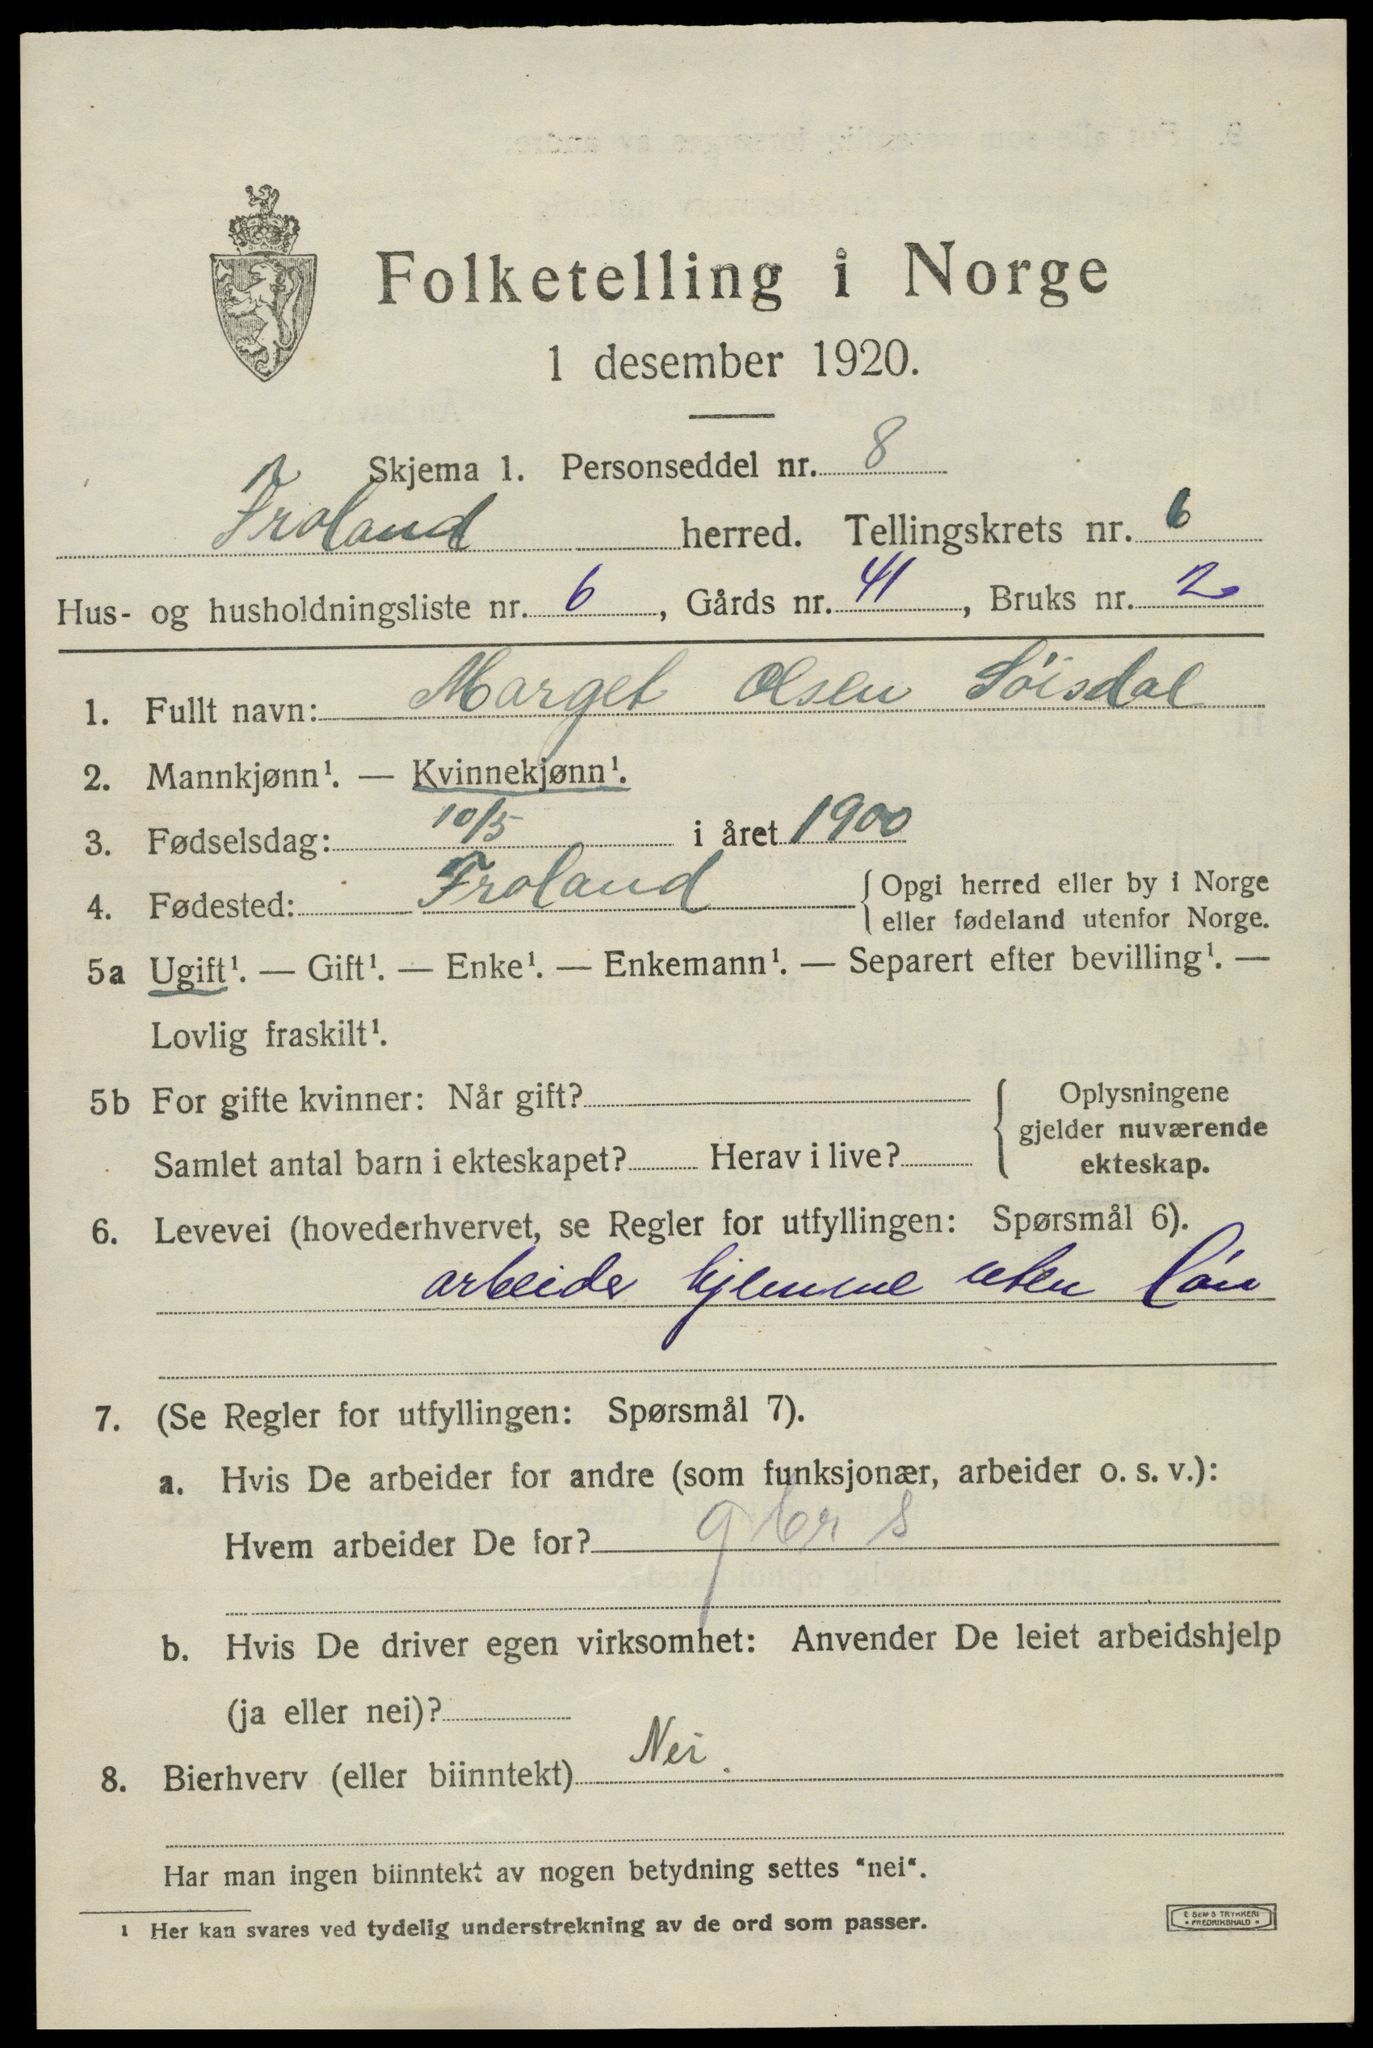 Folketelling i Norge
1 desember 1920.
Skjema 1. Personseddel nr. 8
Froland herred. Tellingskrets nr. 6
Hus- og husholdningsliste nr. 6, Gårds nr. 41, Bruks nr. 2
1. Fullt navn: Marget Olsen Söisdal
2. Mannkjønn¹. — Kvinnekjønn¹.
3. Fødselsdag: 10/5 i året 1900
4. Fødested: Froland { Opgi herred eller by i Norge
eller fødeland utenfor Norge.
5a Ugift¹. — Gift¹. — Enke¹. — Enkemann¹. — Separert efter bevilling¹. —
Lovlig fraskilt¹.
5b For gifte kvinner: Når gift? { Oplysningene
gjelder nuværende
Samlet antal barn i ekteskapet? Herav i live? ekteskap.
6. Levevei (hovederhvervet, se Regler for utfyllingen: Spørsmål 6).
arbeider hjemme uten lön
7. (Se Regler for utfyllingen: Spørsmål 7).
a. Hvis De arbeider for andre (som funksjonær, arbeider o. s. v.):
Hvem arbeider De for? gbr s
b. Hvis De driver egen virksomhet: Anvender De leiet arbeidshjelp
(ja eller nei)?
8. Bierhverv (eller biinntekt) Nei.
Har man ingen biinntekt av nogen betydning settes "nei".
1 Her kan svares ved tydelig understrekning av de ord som passer.
E SEMS TRYKKERI
• FREDRIKSHALD •